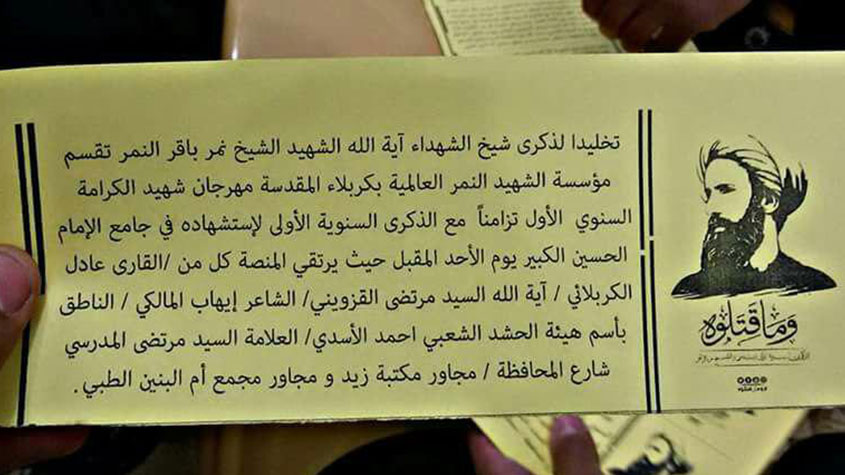 تخليدا لذكرى شيخ الشهداء آية الله الشهيد الشيخ نمر باقر النمر تقسم
مؤسسة الشهيد النمر العالمية بكربلاء المقدسة مهرجان شهيد الكرامة
السنوي الأول تزامناً مع الذكرى السنوية الأولى لإستشهاده في جامع الإمام
الحسين الكبير يوم الأحد المقبل حيث يرتقي المنصة كل من /القارى عادل
الكربلائي / آية الله السيد مرتضى القزويني/ الشاعر إيهاب المالكي / الناطق
بأسم هيئة الحشد الشعبي احمد الأسدي/ العلامة السيد مرتضى المدرسي
شارع المحافظة / مجاور مكتبة زيد و مجاور مجمع أم البنين الطبي .
وما قتلوه